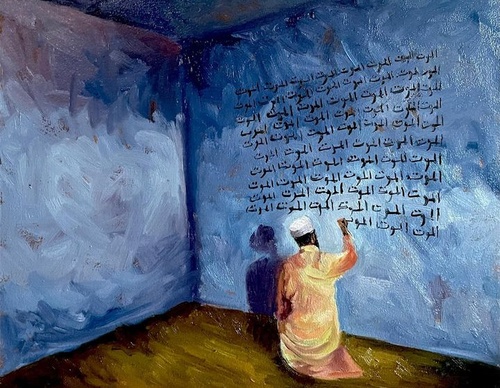 الموت الموت الموت الموت الموت الموت الموت الموت
الموت الموت الموت الموت الموت الموت الموت الموت
الموت الموت الموت الموت الموت الموت الموت الموت
الموت الموت الموت الموت الموت الموت الموت الموت
الموت الموت الموت الموت الموت الموت الموت
الموت الموت الموت الموت الموت الموت الموت
الموت الموت الموت الموت الموت الموت
الموت الموت الموت الموت الموت الموت
الموت الموت الموت الموت الموت الموت
الموت الموت الموت الموت الموت الموت
الموت الموت الموت